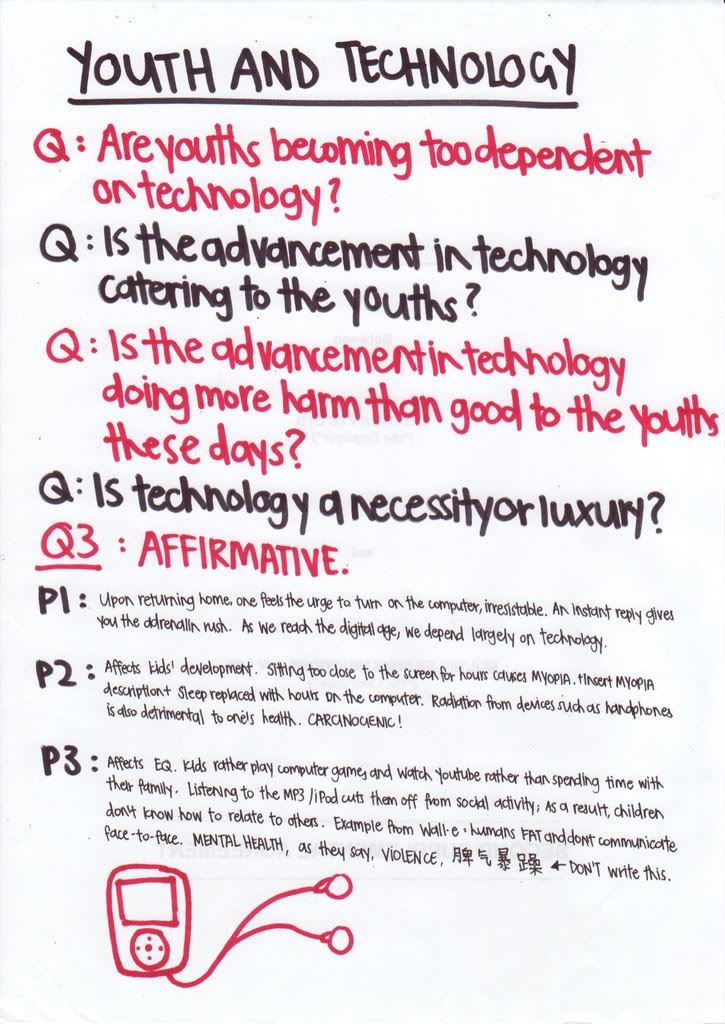 YOUTH AND TECHNOLOGY
Q: Are youths becoming too dependent
on technology?
Q: Is the advancement in technology
catering to the youths?
Q: Is the advancement in technology
doing more harm than good to the youths
these days?
Q: Is technology a necessity or luxury?
Q3: AFFIRMATIVE.
P1: Upon returning home, one feels the urge to turn on the computer, irresistable. An instant reply gives
you the adrenalin rush. As we reach the digital age, we depend largely on technology.
P2: Affects kids' development. Sitting too close to the screen for hours causes MYOPIA. +Insert MYOPIA
description+ Sleep replaced with hours on the computer. Radiation from devices such as handphones
is also detrimental to one's health. CARCINOGENIC!
P3: Affects EQ. Kids rather play computer games and watch Youtube rather than spending time with
their family. Listening to the MP3/iPod cuts them off from social activity; As a result, children
don't know how to relate to others. Example from Wall·e: humans FAT and dont communicate
face-to-face. MENTAL HEALTH, as they say, VIOLENCE, 脾气暴躁 ← DON'T write this.